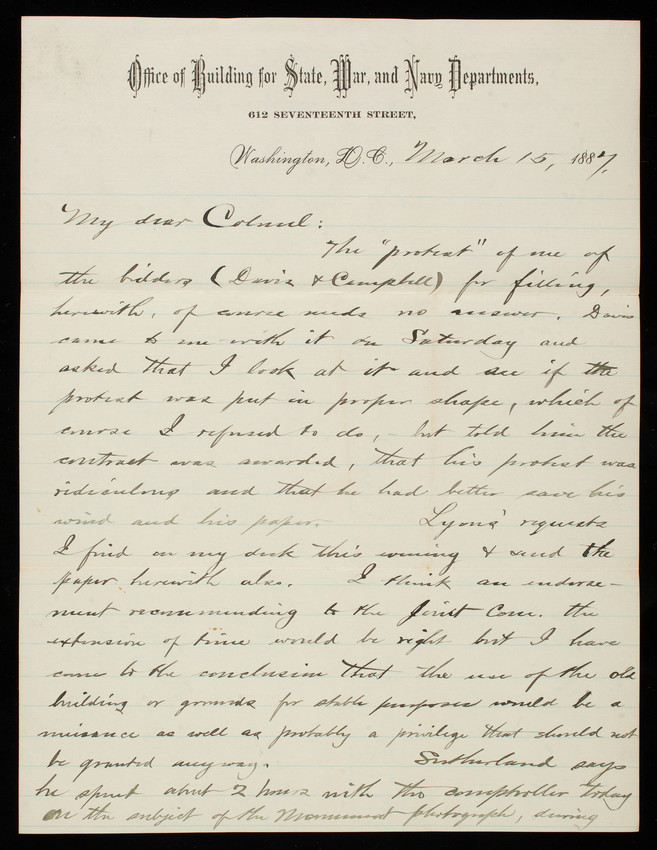 Office of Building for State, War, and Navy Departments,
612 SEVENTEENTH STREET,
Washington, D.C., March 15, 1887,
My dear Colonel:
The "protest" of one of
the bidders (Davis & Campbell) for filling,
herewith, of course needs no answer. Davis
came to me with it on Saturday and
asked that I look at it and see if the
protest was put in proper shape, which of
course I refused to do, - but told him the
contract was awarded, that his protest was
ridiculous and that he had better save his
wind and his paper. Lyons' requests
I find on my desk this evening & send the
paper herewith also. I think an endorse-
ment recommending to the Joint Com. the
extension of time would be right but I have
come to the conclusion that the use of the old
building or grounds for stable purposes would be a
nuisance as well as probably a privilege that should not
be granted anyway. Sutherland says
he spent about 2 hours with the comptroller today
on the subject of the Monument photograph, during